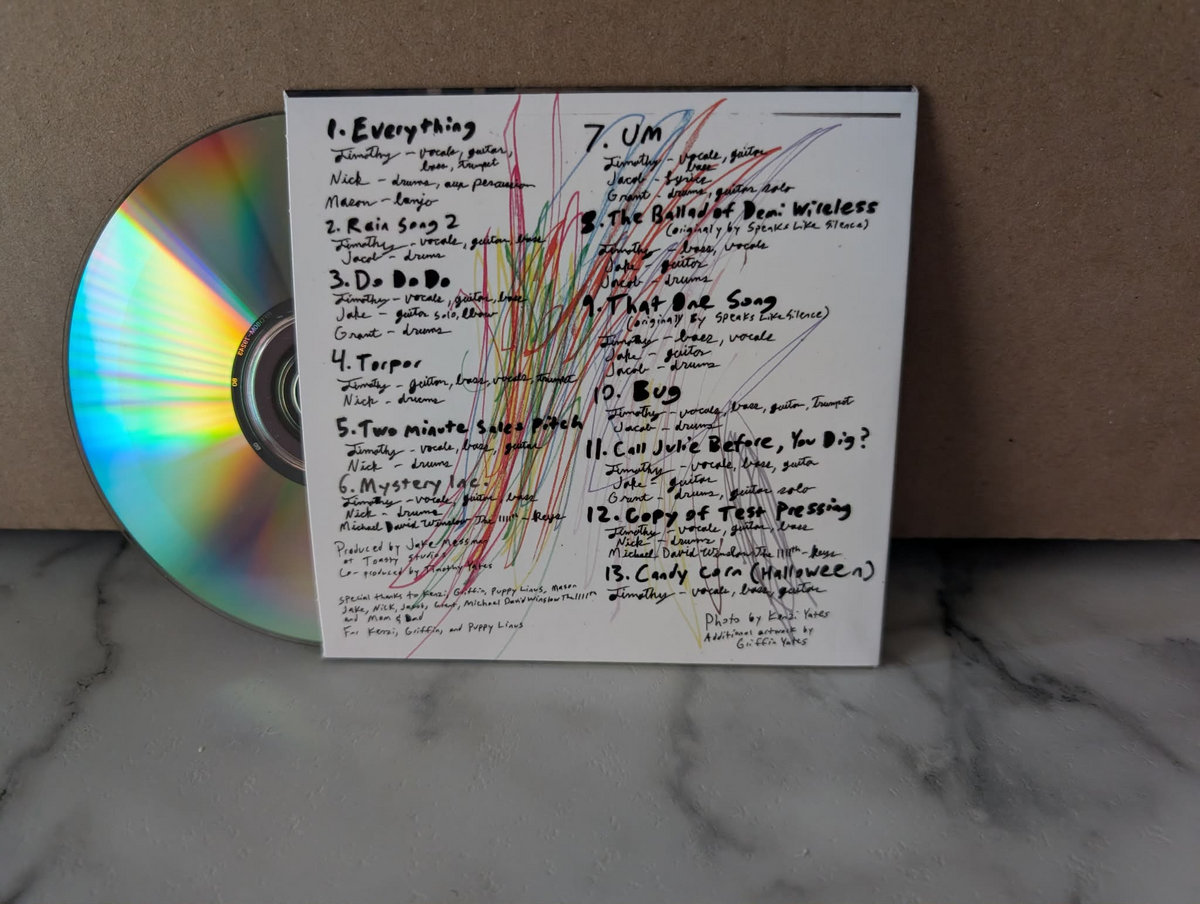 1. Everything
Timothy - vocals, guitar,
bass, trumpet
Nick - drums, aux percussion
Mason - banjo
2. Rain Song 2
Timothy - vocals, guitar, bass
Jacob - drums
3. Do Do Do
Timothy - vocals, guitar, bass
Jake - guitar solo, elbow
Grant - drums
4. Torpor
Timothy - guitar, bass, vocals, trumpet
Nick - drums
5. Two minute Sales Pitch
Timothy - vocals, bass, guitar
Nick - drums
6. Mystery Inc.
Timothy - vocals, guitar, bass
Nick - drums
Michael David Winslow The 1111th - Keys
Produced by Jake Messman
at Toasty Studios
Co-produced by Timothy Yates
Special thanks to Kenzi, Griffin, Puppy Linus, Mason
Jake, Nick, Jacob, Grant, Michael David Winslow The 1111th
and Mom & Dad
For Kenzi, Griffin, and Puppy Linus
7. UM
Timothy - vocals, guitar
bass
Jacob - lyrics
Grant - drums, guitar solo
8. The Ballad of Demi Wireless
(originally by Speaks Like Silence)
Timothy - bass, vocals
Jake - guitar
Jacob - drums
9. That One Song
(originally By Speaks Like Silence)
Timothy - bass, vocals
Jake - guitar
Jacob - drums
10. Bug
Timothy - vocals, bass, guitar, trumpet
Jacob - drums
11. Call Julie Before, You Dig?
Timothy - vocals, bass, guitar
Jake - guitar
Grant - drums, guitar solo
12. Copy of Test Pressing
Timothy - vocals, guitar, bass
Nick - drums
Michael David Winslow The 1111th - Keys
13. Candy Corn (Halloween)
Timothy - vocals, bass, guitar
Photo by Kenzi Yates
Additional artwork by
Griffin Yates